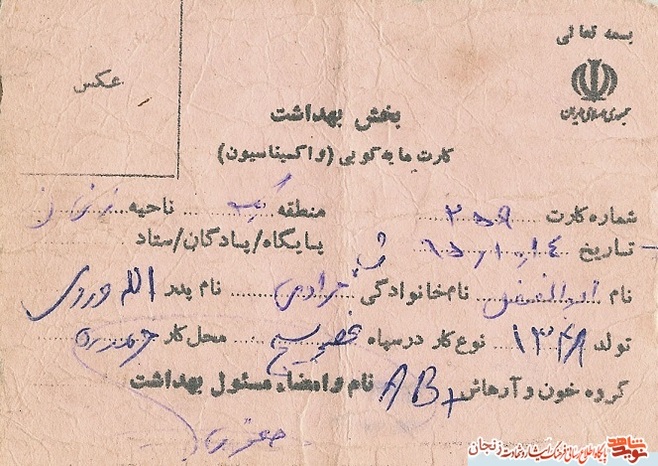 بسمه تعالی
جمهوری اسلامی ایران
عکس
بخش بهداشت
کارت مایه کوبی (واکسیناسیون)
شماره کارت ۳۵۹ منطقه یک ناحیه زنجان
تاریخ پایگاه/پادگان/ستاد
نام ابوالفضل نام خانوادگی مرادی نام پدر الله وردی
تولد ۱۳۴۸ نوع کار در سپاه بسیج محل کار
گروه خون و آرهاش AB+ نام و امضاء مسئول بهداشت
جعفری
نوید شاهد
پایگاه اطلاع رسانی فرهنگ ایثار و شهادت زنجان